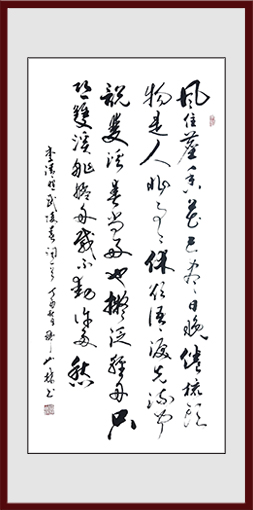 風住塵香花已盡日晚倦梳頭
物是人非事々休欲語淚先流聞
說雙溪春尚好也擬泛輕舟只
恐雙溪舴艋舟載不動許多愁
李清照武陵春詞一首